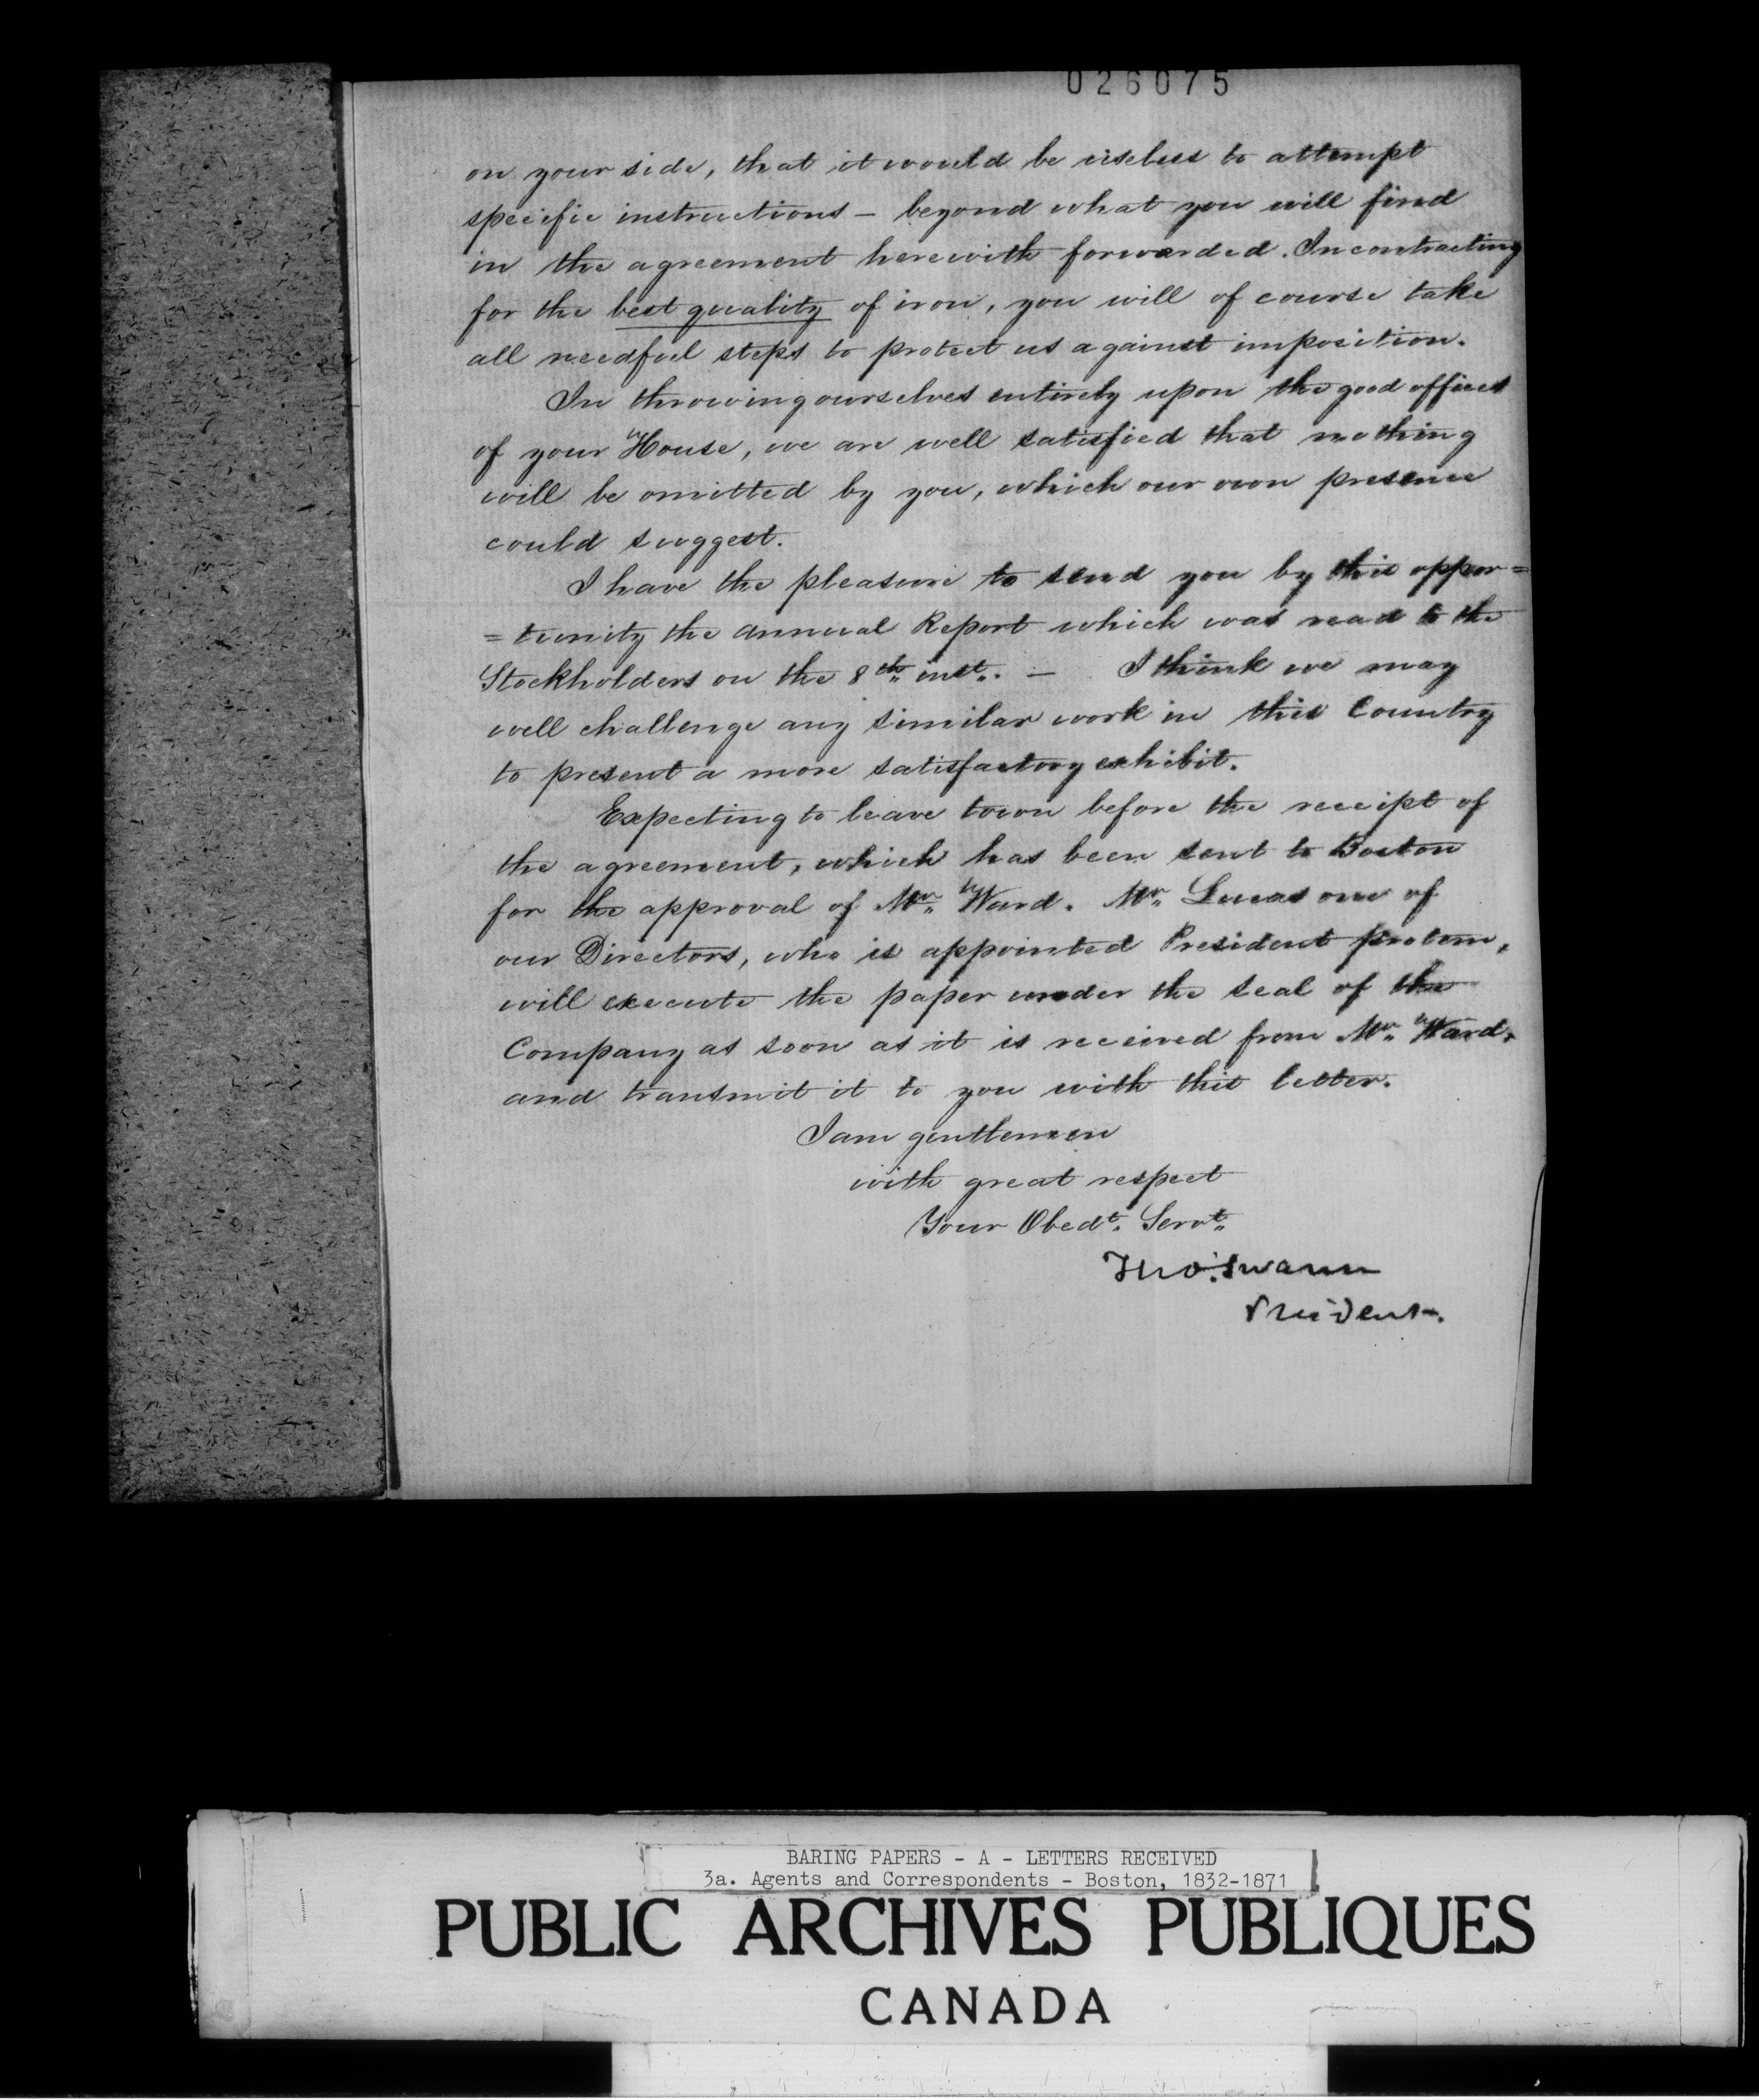 026075
on your side, that it would be useless to attempt
specific instructions – beyond what you will find
in the agreement herewith forwarded. In contracting
for the best quality of iron, you will of course take
all needful steps to protect us against imposition.
In throwing ourselves entirely upon the good offices
of your House, we are well satisfied that nothing
will be omitted by you, which our own presence
could suggest.
I have the pleasure to send you by this oppor=
=tunity the annual Report which was read to the
Stockholders on the 8th inst. – I think we may
well challenge any similar work in this Country
to present a more satisfactory exhibit.
Expecting to leave town before the receipt of
the agreement, which has been sent to Boston
for the approval of Mr. Ward. Mr. Lucas one of
our Directors, who is appointed President protem,
will execute the paper under the seal of the
Company as soon as it is received from Mr. Ward,
and transmit it to you with this letter.
I am gentlemen
with great respect
Your Obedt. Servt.
Tho. Swann
President.
BARING PAPERS - A - LETTERS RECEIVED
3a. Agents and Correspondents - Boston, 1832-1871
PUBLIC ARCHIVES PUBLIQUES
CANADA